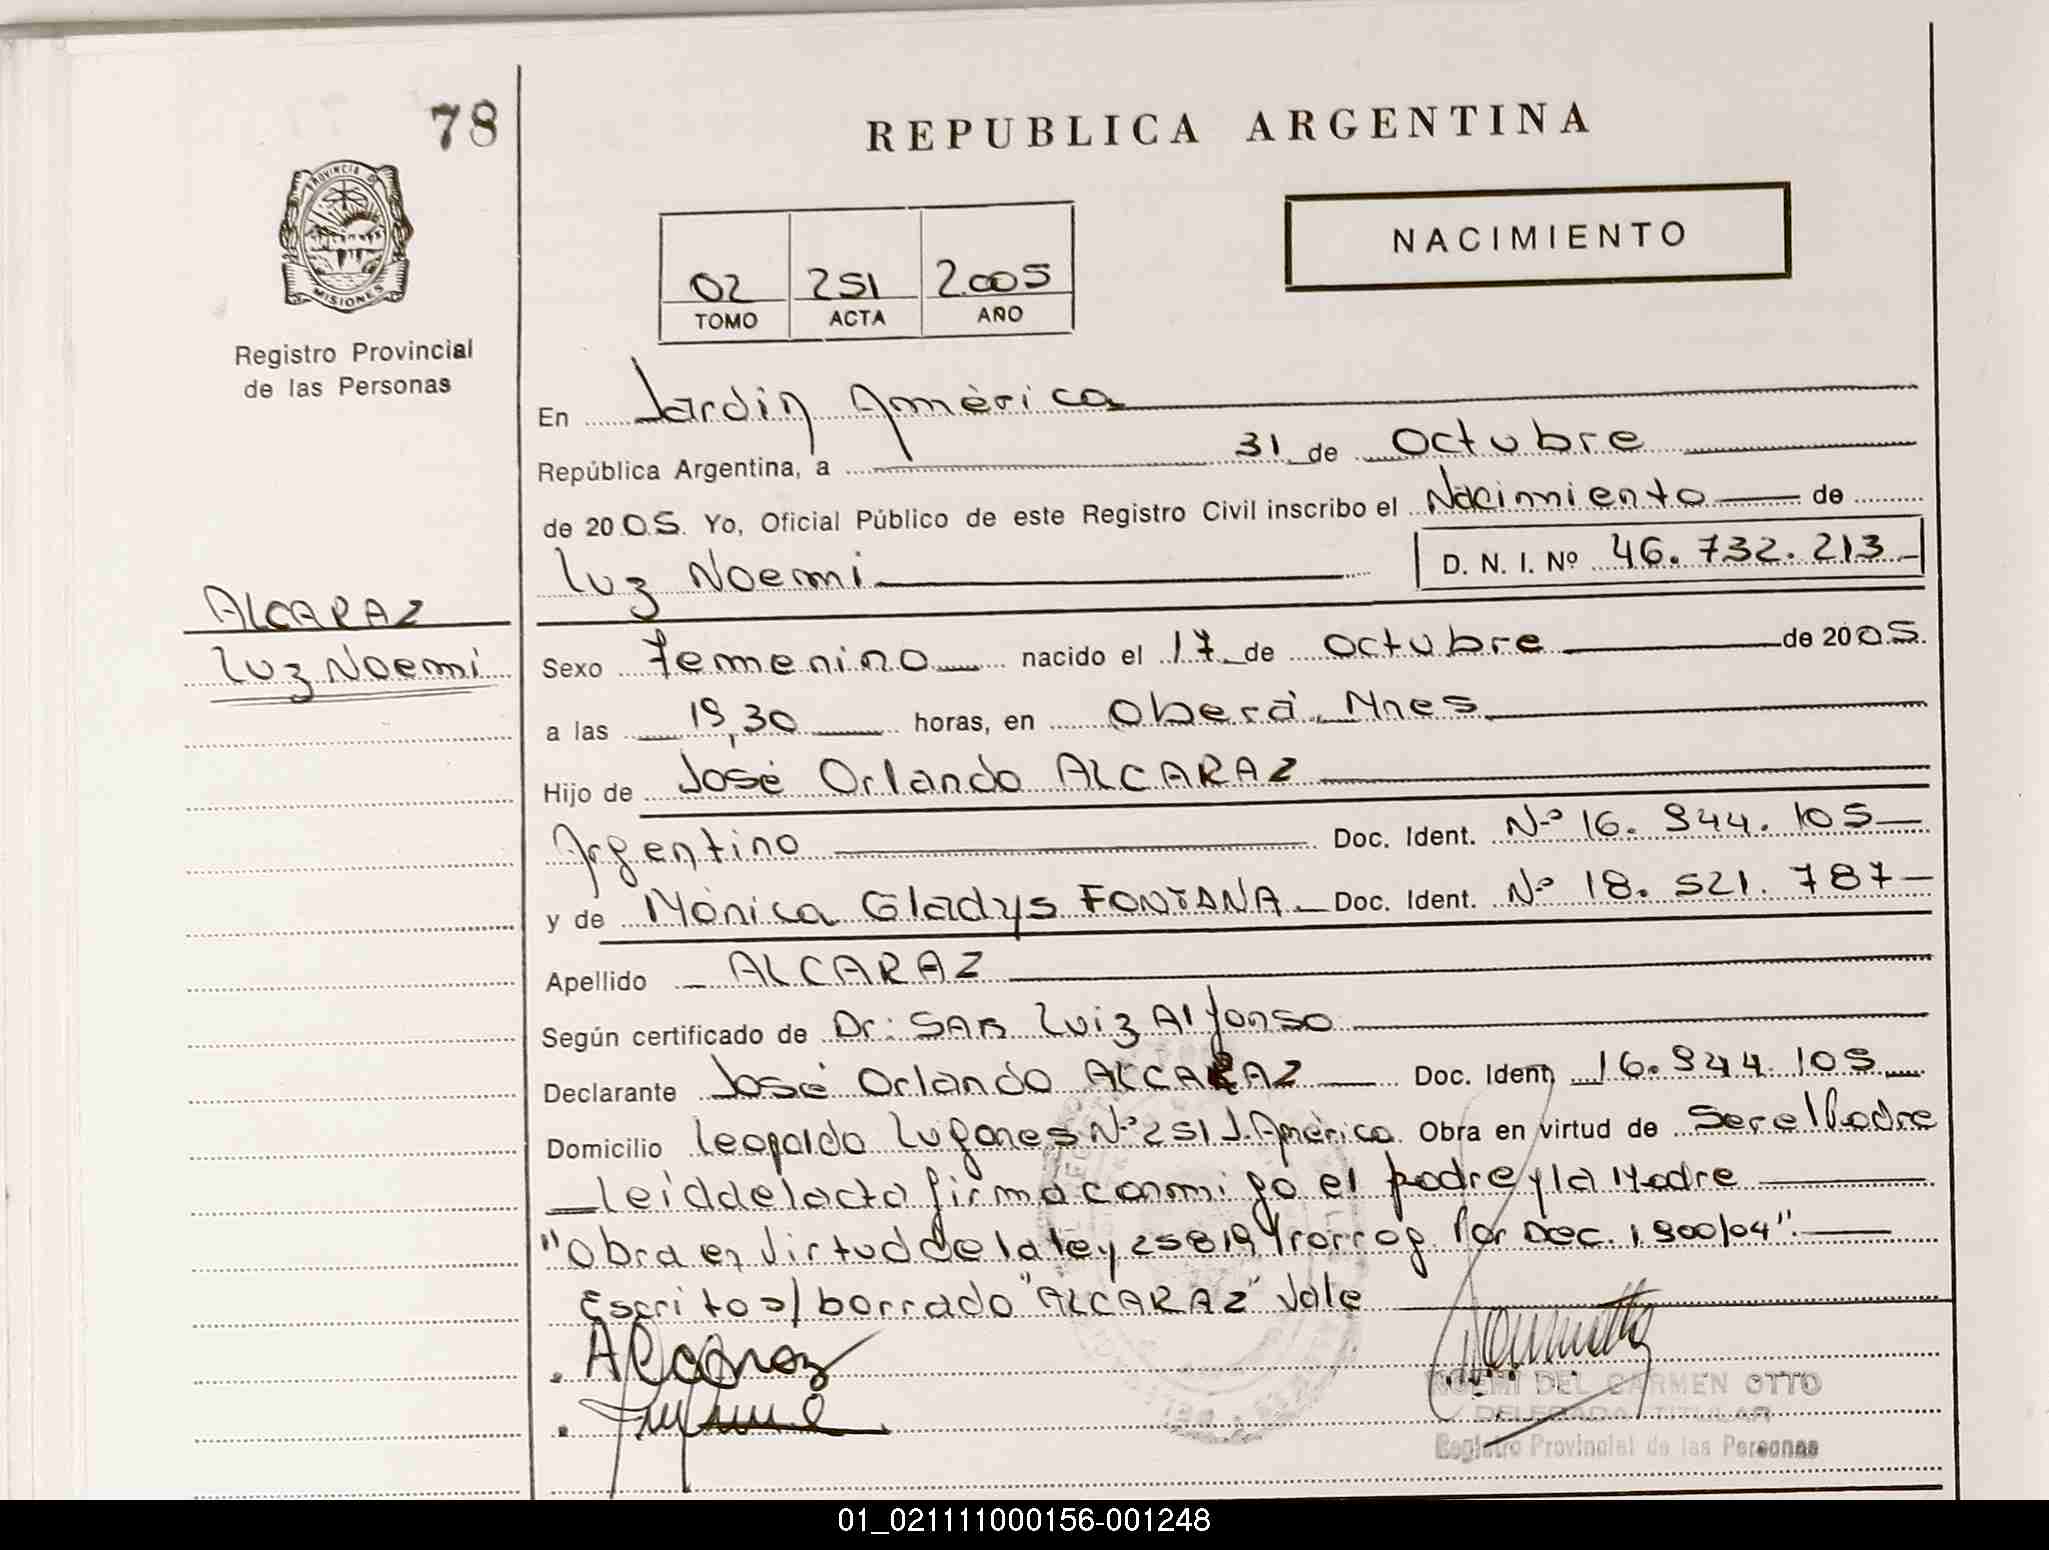 78
REPUBLICA ARGENTINA
NACIMIENTO
PROVINCIA DE
MISIONES
02 251 2.005
TOMO ACTA AÑO
Registro Provincial
de las Personas
En Jardín América
República Argentina, a 31 de Octubre
de 2005. Yo, Oficial Público de este Registro Civil inscribo el Nacimiento de
Luz Noemi D. N. I. Nº 46.732.213
ALCARAZ
Luz Noemi
Sexo Femenino nacido el 17 de Octubre de 2005.
a las 19,30 horas, en Oberá, Mnes
Hijo de José Orlando ALCARAZ
Argentino Doc. Ident. Nº 16.944.105
y de Mónica Gladys FONTANA. Doc. Ident. Nº 18.521.787
Apellido ALCARAZ
Según certificado de Dr: SAB Luiz Alfonso
Declarante José Orlando ALCARAZ Doc. Ident. 16.944.105
Domicilio Leopoldo Lugones Nº 251 J. América. Obra en virtud de Ser el Padre
Leída el acta firma conmigo el padre y la Madre
"Obra en Virtud de la ley 25819 Prorrog. Por Dec. 1.900/04".
Escrito s/ borrado "ALCARAZ" Vale
Alcaraz
NOEMI DEL CARMEN OTTO
DELEGADA TITULAR
Registro Provincial de las Personas
01_021111000156-001248